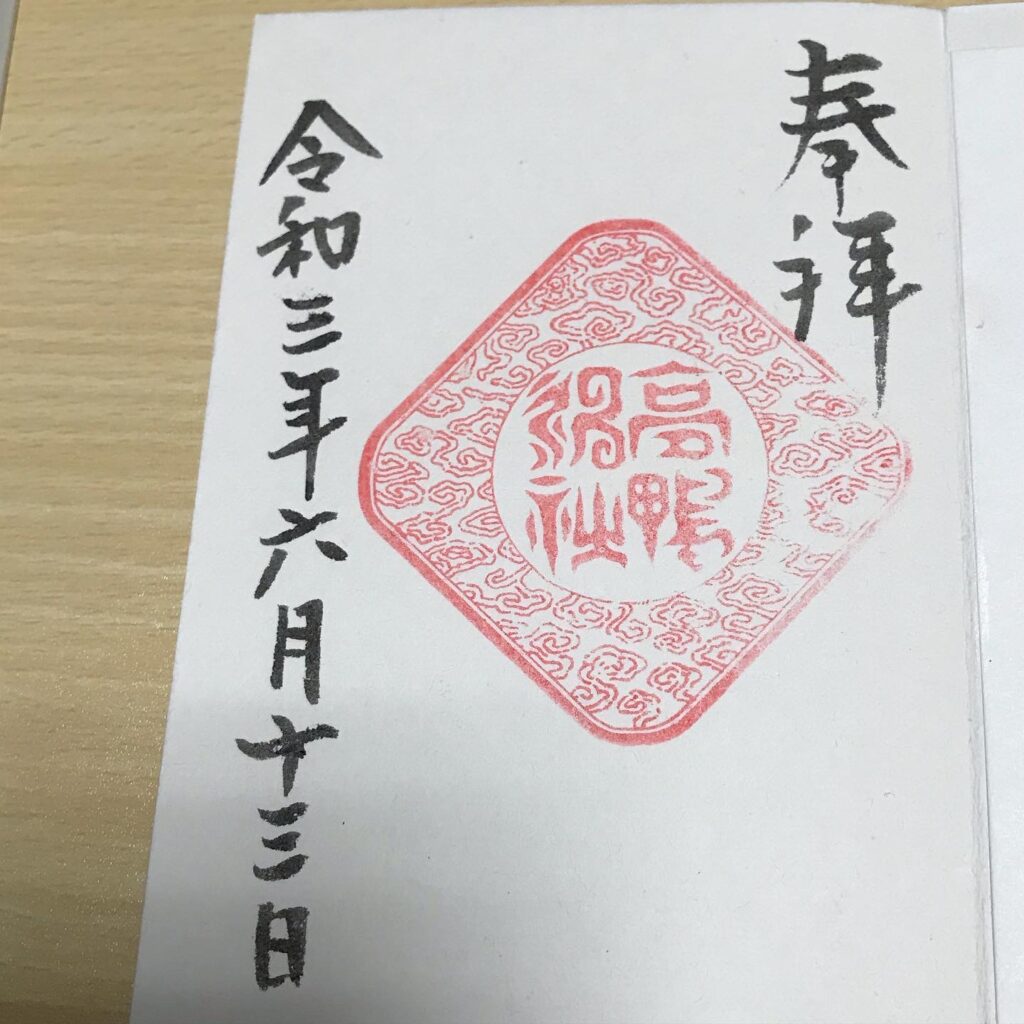 奉拝
高鴨神社
令和三年六月十三日